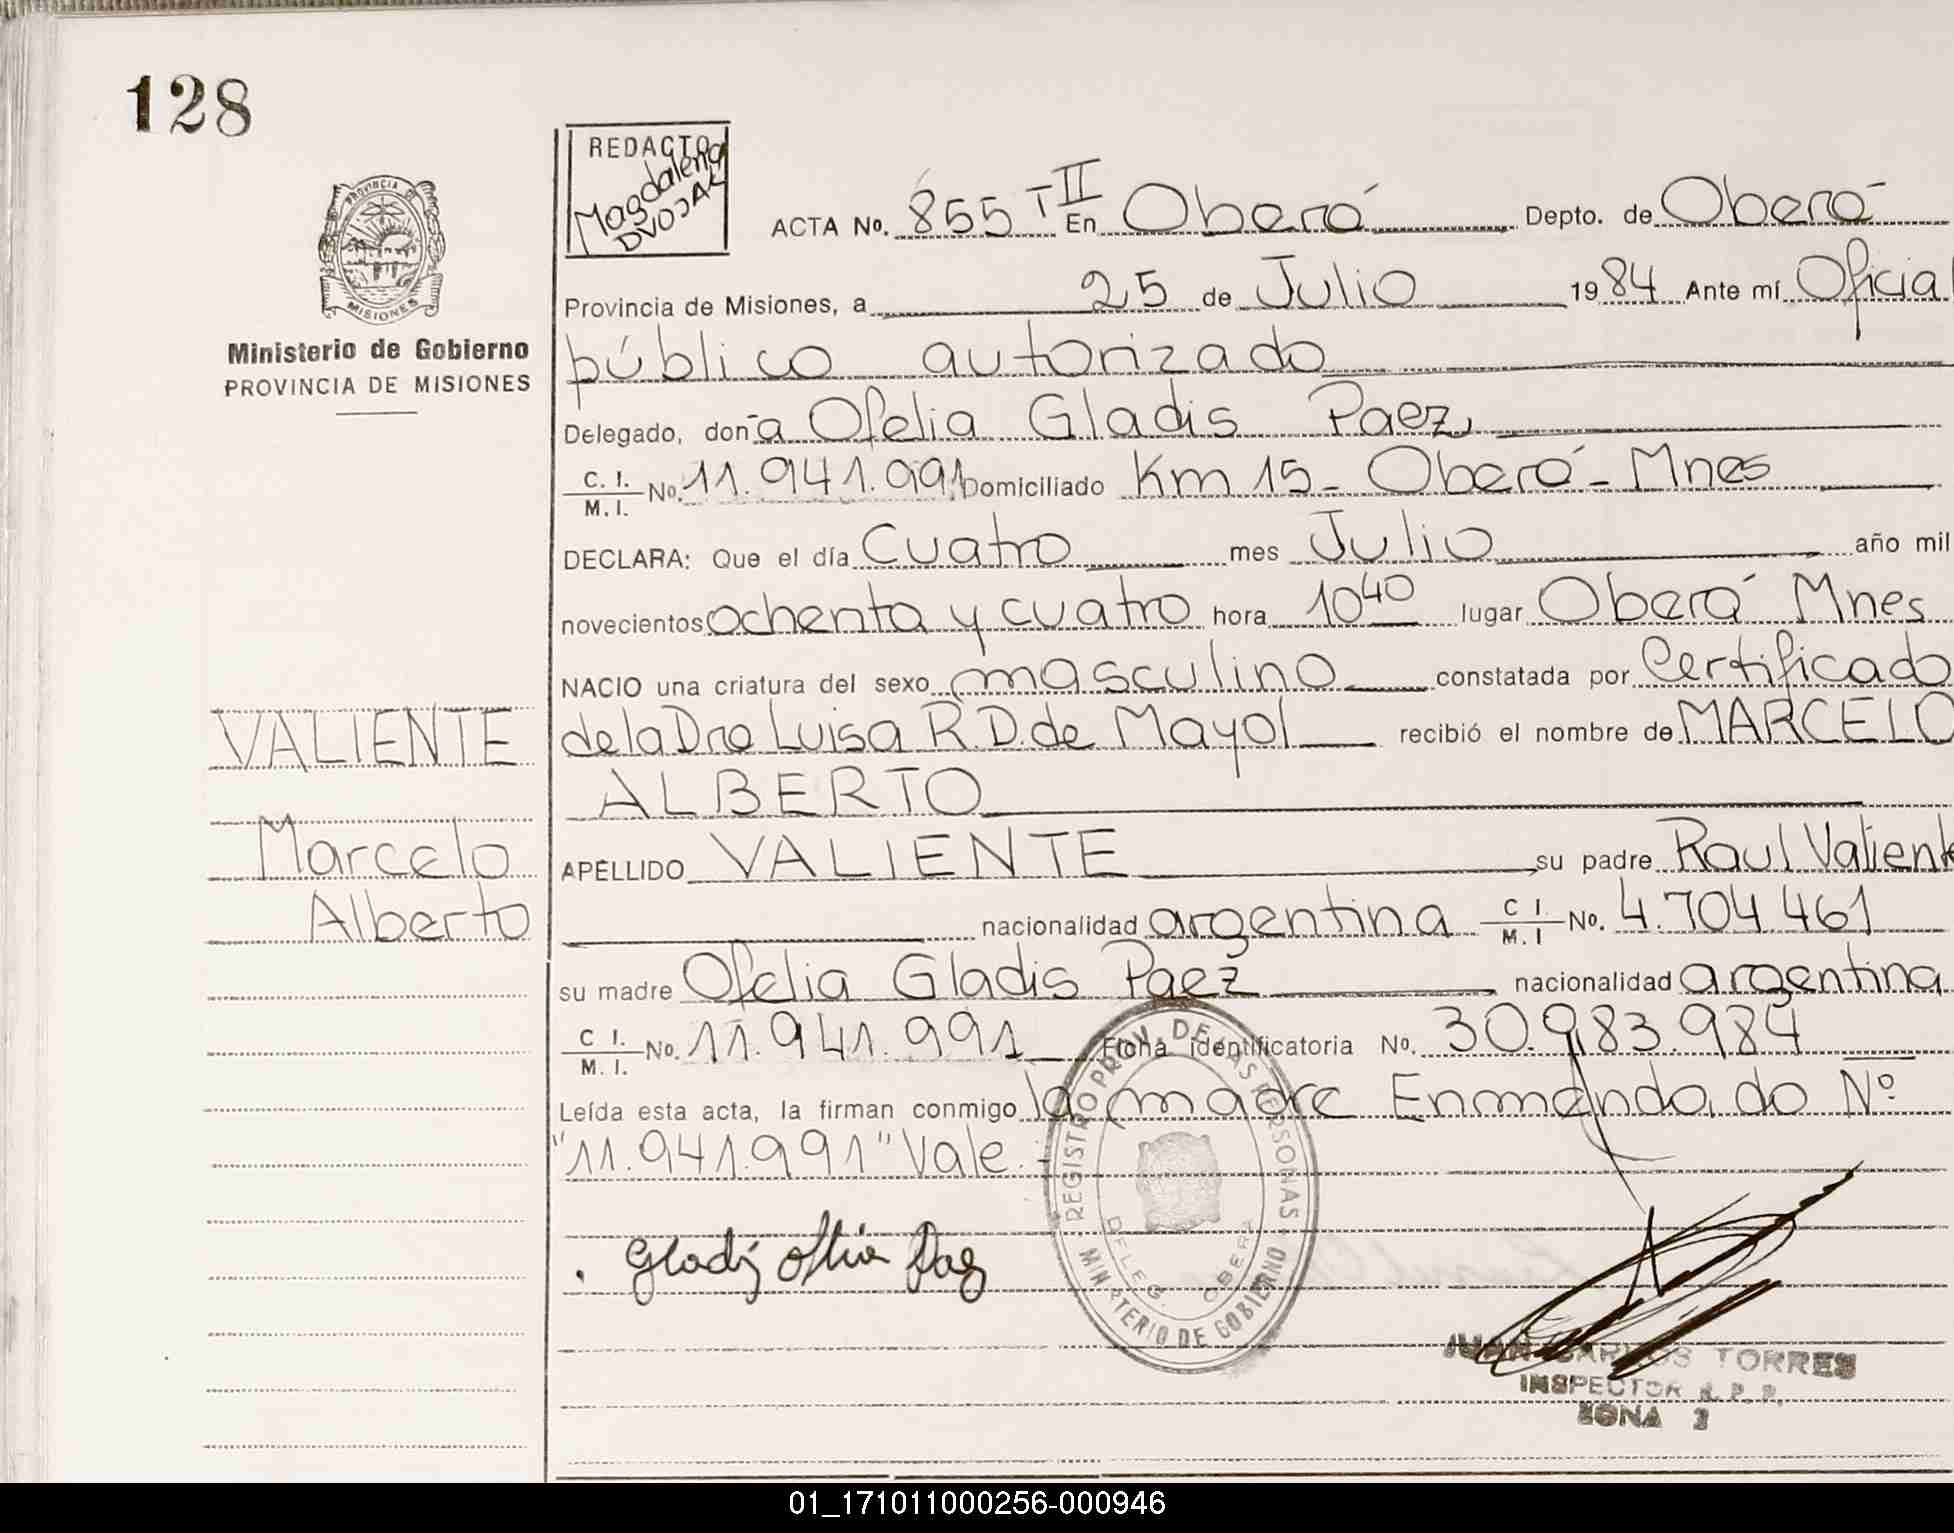 128
REDACTO
Magdalena
DVOJAK
PROVINCIA DE
MISIONES
Ministerio de Gobierno
PROVINCIA DE MISIONES
ACTA No. 855 T II En Oberá Depto. de Oberá
Provincia de Misiones, a 25 de Julio 1984 Ante mí Oficial
público autorizado
Delegado, don̄a Ofelia Gladis Paez,
C. I. / M. I. No. 11.941.991 Domiciliado Km 15 - Oberá - Mnes
DECLARA: Que el día Cuatro mes Julio año mil
novecientos ochenta y cuatro hora 10 40 lugar Oberá Mnes
NACIO una criatura del sexo masculino constatada por Certificado
de la Dra Luisa R. D. de Mayol recibió el nombre de MARCELO
ALBERTO
VALIENTE
Marcelo
Alberto
APELLIDO VALIENTE su padre Raul Valiente
nacionalidad argentina C I. / M. I No. 4.704.461
su madre Ofelia Gladis Paez nacionalidad argentina
C I. / M. I. No. 11.941.991 Ficha identificatoria No. 30.983.984
Leída esta acta, la firman conmigo la madre Enmendado do Nº
"11.941.991" Vale.-
Gladis Ofelia Paez
REGISTRO PROV. DE LAS PERSONAS
MINISTERIO DE GOBIERNO
DELEG. OBERA
JUAN CARLOS TORRES
INSPECTOR R. P. P.
ZONA 3
01_171011000256-000946